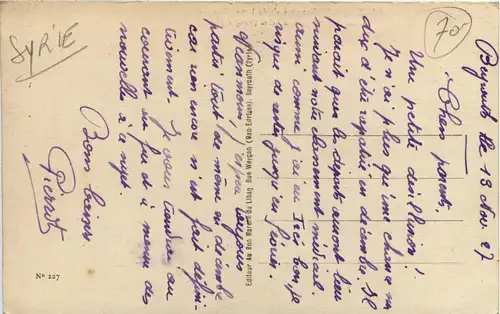 SYRIE
70
Beyrouth le 13 Nov. 27
Chers parents,
Une petite désillusion !
Je n'ai plus que une chance sur
dix d'être rapatrié en décembre. Il
paraît que les départs auront lieu
suivant notre classement médical.
aussi comme j'ai eu Très bon, je
risque de rester jusqu'en février.
Néanmoins, j'espère toujours
partir tout de même en décembre
car rien encore n'est fait défini-
tivement. Je vous tiendrai au
courant du fur et à mesure des
nouvelles à ce sujet.
Bons baisers
Pierrot
Editeur Au Bon Marché du Liban, Rue Weygan (Ban-Edrisse), Beyrouth (Syrie)
Nº 227